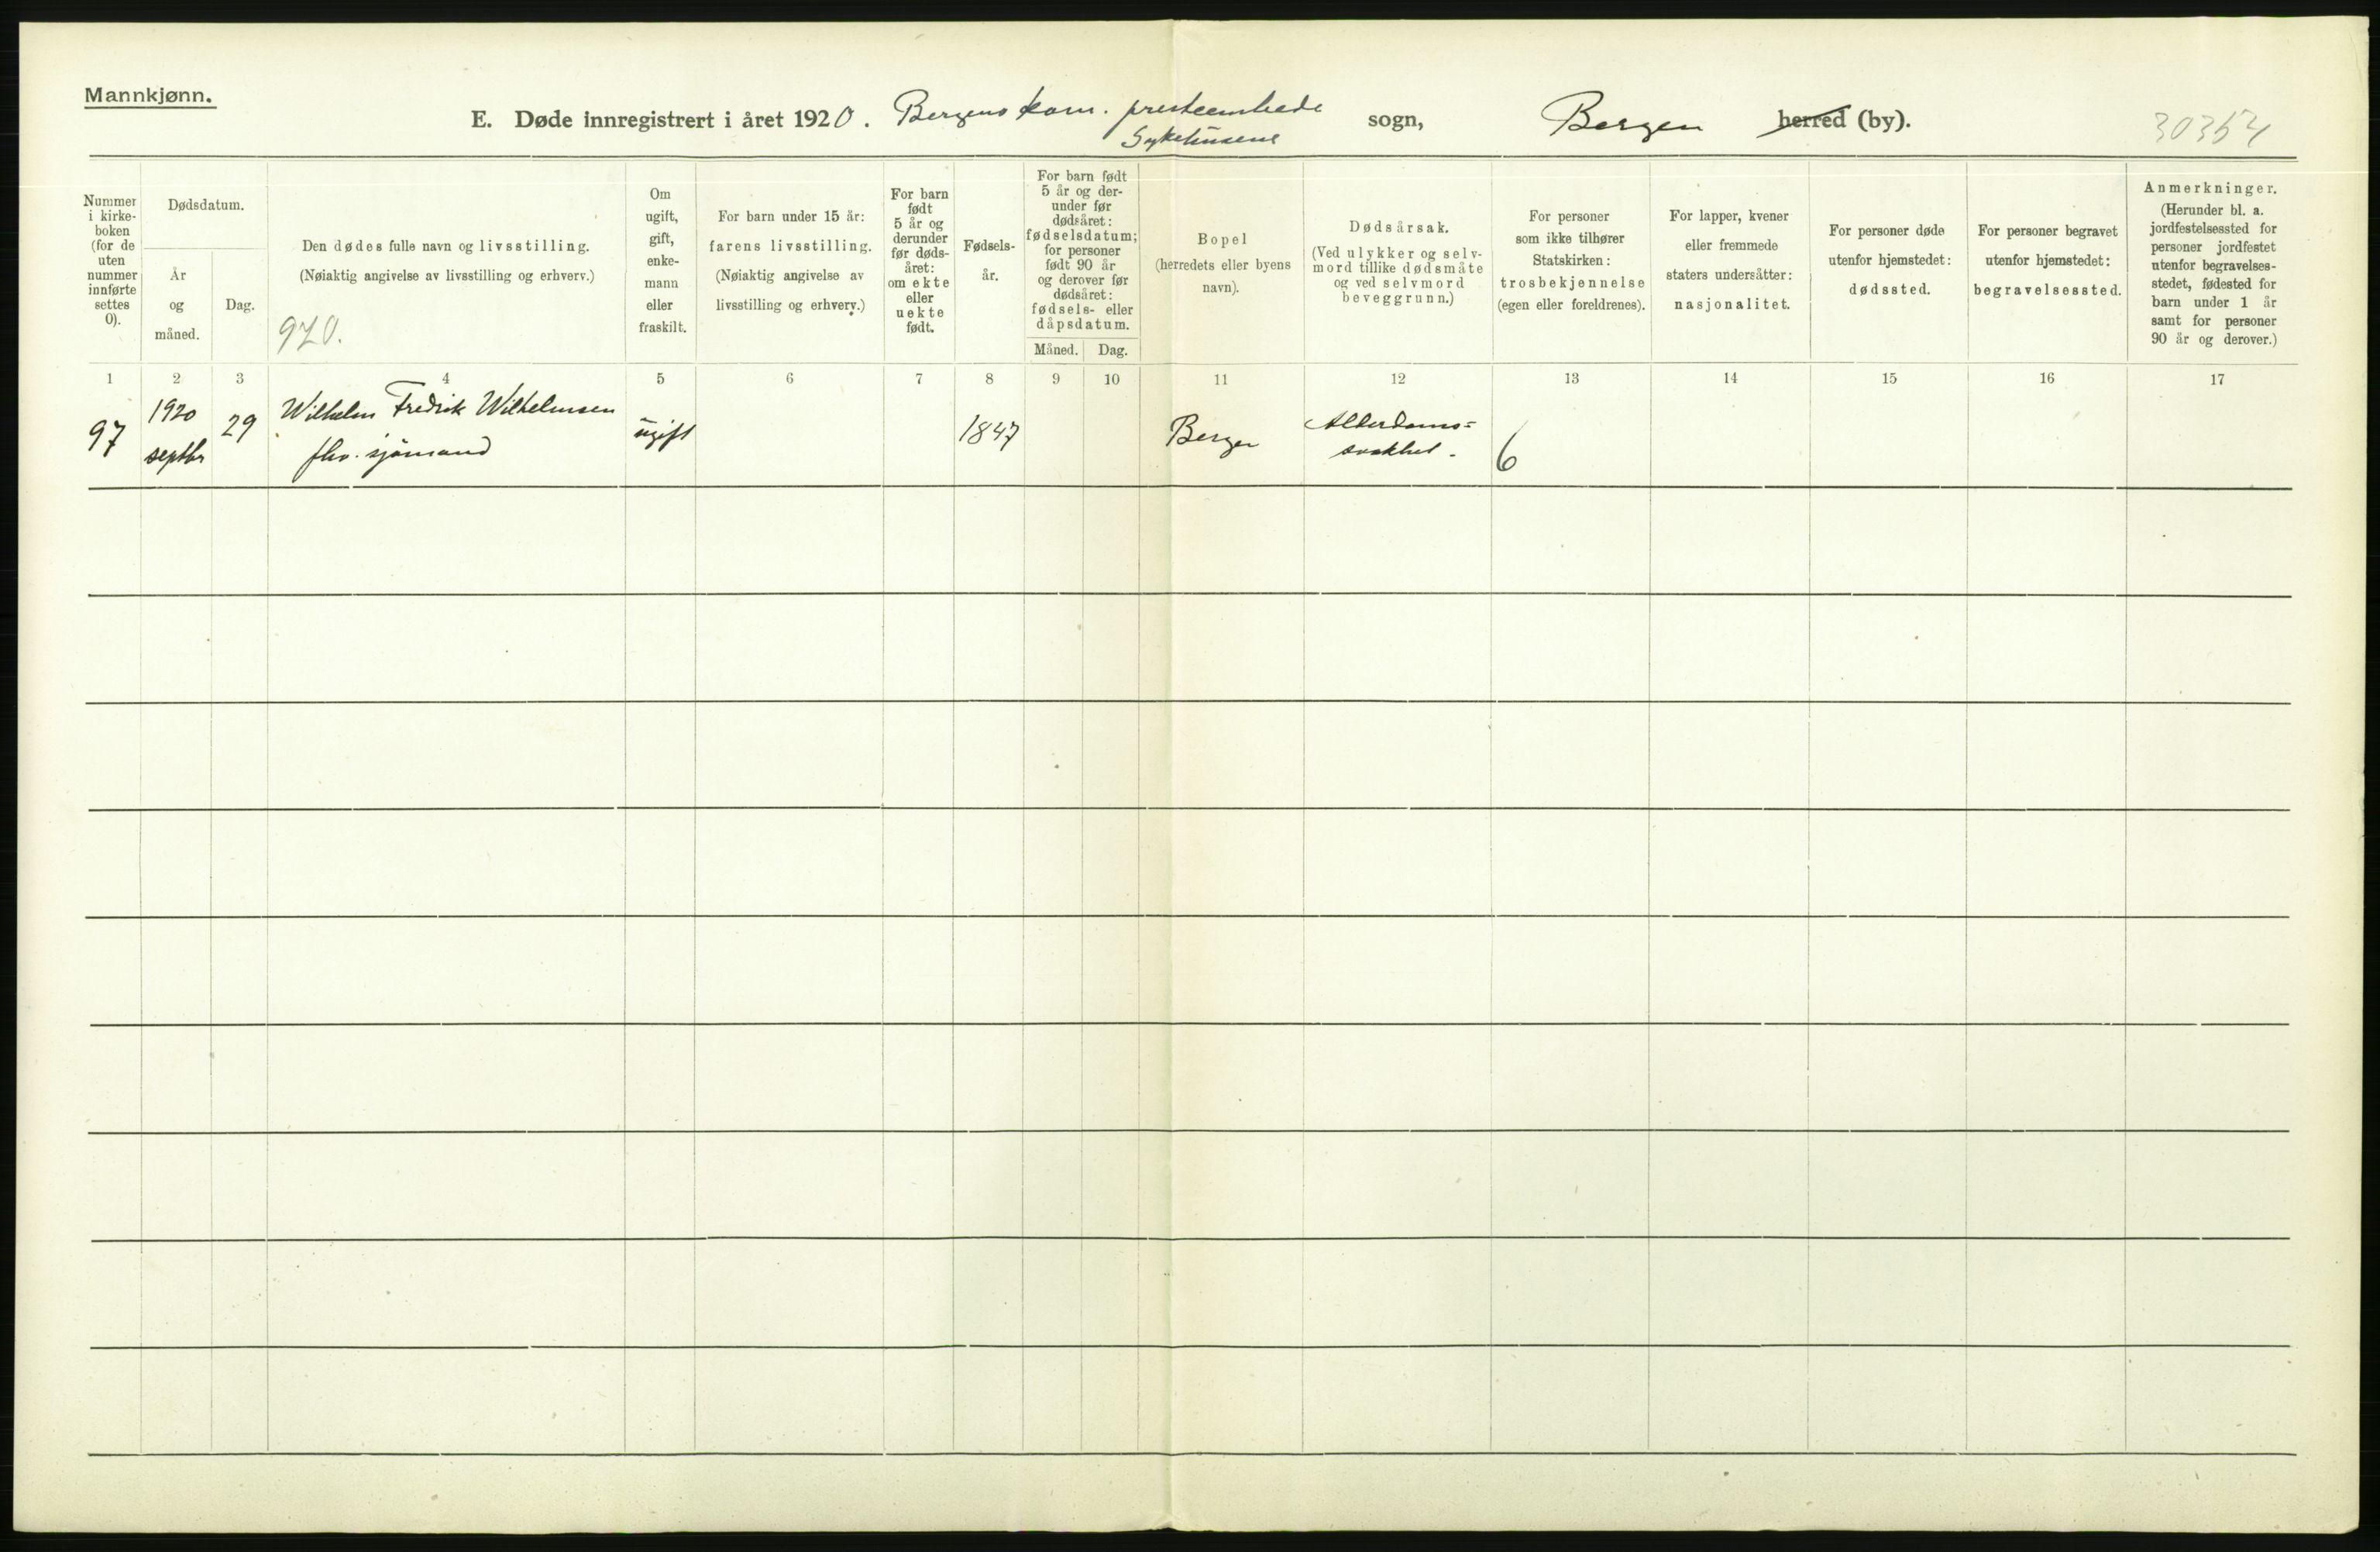 Mannkjønn.
E. Døde innregistrert i året 1920. Bergens kom. presteembede sogn, Bergen herred (by).
Sykehusene
Nummer i kirke-boken (for de uten nummer innførte settes 0).
Dødsdatum.
År og måned.
Dag.
Den dødes fulle navn og livsstilling.
(Nøiaktig angivelse av livsstilling og erhverv.)
920.
Om ugift, gift, enke-mann eller fraskilt.
For barn under 15 år:
farens livsstilling.
(Nøiaktig angivelse av
livsstilling og erhverv.)
For barn født 5 år og derunder før døds-året: om ekte eller uekte født.
Fødsels-
år.
For barn født
5 år og der-
under før
dødsåret:
fødselsdatum;
for personer
født 90 år
og derover før
dødsåret:
fødsels- eller
dåpsdatum.
Måned. Dag.
Bopel
(herredets eller byens
navn).
Dødsårsak.
(Ved ulykker og selv-
mord tillike dødsmåte
og ved selvmord
beveggrunn.)
For personer
som ikke tilhører
Statskirken:
trosbekjennelse
(egen eller foreldrenes).
For lapper, kvener
eller fremmede
staters undersåtter:
nasjonalitet.
For personer døde
utenfor hjemstedet:
dødssted.
For personer begravet
utenfor hjemstedet:
begravelsessted.
Anmerkninger.
(Herunder bl. a.
jordfestelsessted for
personer jordfestet
utenfor begravelses-
stedet, fødested for
barn under 1 år
samt for personer
90 år og derover.)
1 2 3 4 5 6 7 8 9 10 11 12 13 14 15 16 17
97 1920 septbr 29 Wilhelm Fredrik Wilhelmsen
fhv. sjömand
ugift 1847 Bergen Alderdoms=
svakhet. 6